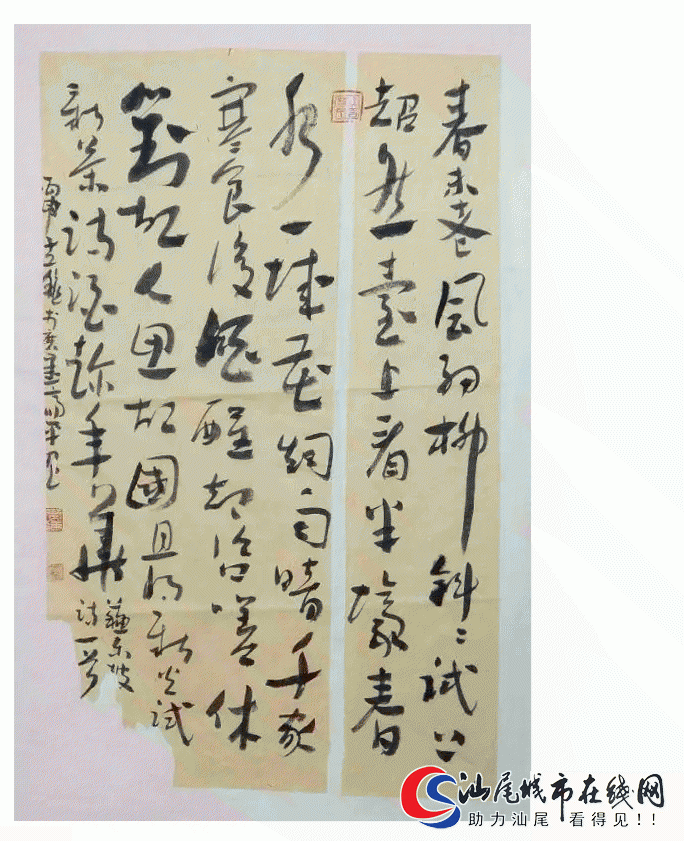 春未老風細柳斜〻試上
超然臺上看半壕春
水一城花烟雨暗千家
寒食後酒醒却咨嗟休
對故人思故國且将新火試
新茶詩酒趁年華
蘇东坡
詩一首
汕尾城市在线网
助力汕尾 看得见!!